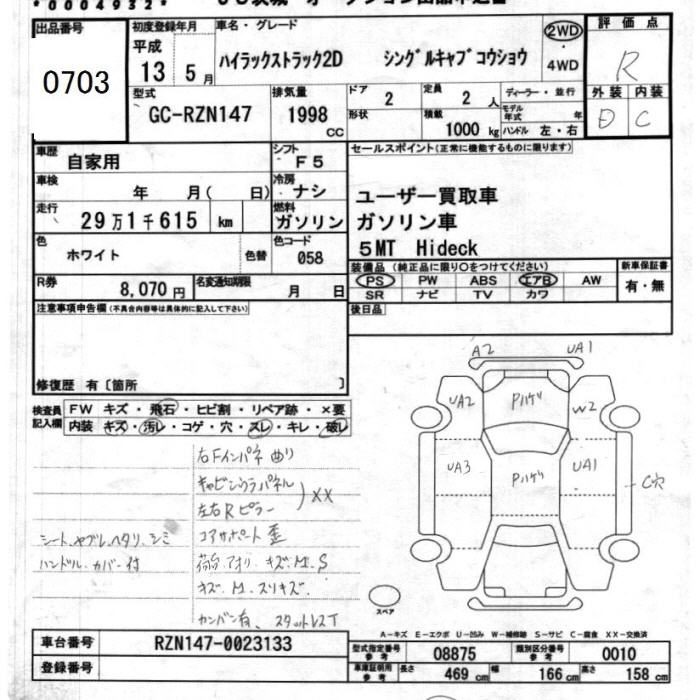 *0004932*
出品番号
0703
初度登録年月
平成
13 5月
車名・グレード
ハイラックストラック2D シングルキャブコウショウ
2WD
・
4WD
評価点
R
外装 内装
D C
型式
GC-RZN147
排気量
1998 CC
ドア
2
形状
定員
2 人
積載
1000 kg
ディーラー・並行
モデル年式 年
ハンドル 左・右
車歴
自家用
シフト
F5
車検
年 月( 日)
冷房
ナシ
走行
29万1千615 km
燃料
ガソリン
色
ホワイト
色替
色コード
058
R券
8,070円
名変通知期限
月 日
セールスポイント(正常に機能するものに限ります)
ユーザー買取車
ガソリン車
5MT Hideck
装備品(純正品に限り○をつけてください)
PS PW ABS エアB AW
SR ナビ TV カワ
新車保証書
有・無
後日品
注意事項申告欄(不具合内容等は具体的に記入して下さい)
修復歴 有〔箇所 〕
検査員記入欄
FW キズ・飛石・ヒビ割・リペア跡・×要
内装 キズ・汚レ・コゲ・穴・スレ・キレ・破レ
右Fインパネ曲り
キャビンウラパネル
左右Rピラー
XX
コアサポート歪
シート、ヤブレ、ヘタリ、シミ
ハンドル.カバー付
荷台.アオリ.キズ.M.S
キズ.M.スリキズ.
カンバン有、スタットレスT
A2 UA1
UA2 Pハゲ W2
UA3 Pハゲ UA1
C穴
スペア
A-キズ E-エクボ U-凹み W-補修跡 S-サビ C-腐食 XX-交換済
車台番号
RZN147-0023133
登録番号
型式指定番号
参考
08875
類別区分番号
参考
0010
車庫証明用
参考
長さ 469 cm 幅 166 cm 高さ 158 cm